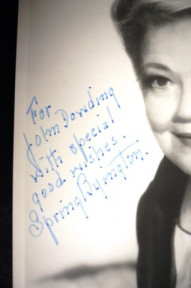 For
John Dowding
with special
good wishes.
Spring Byington.